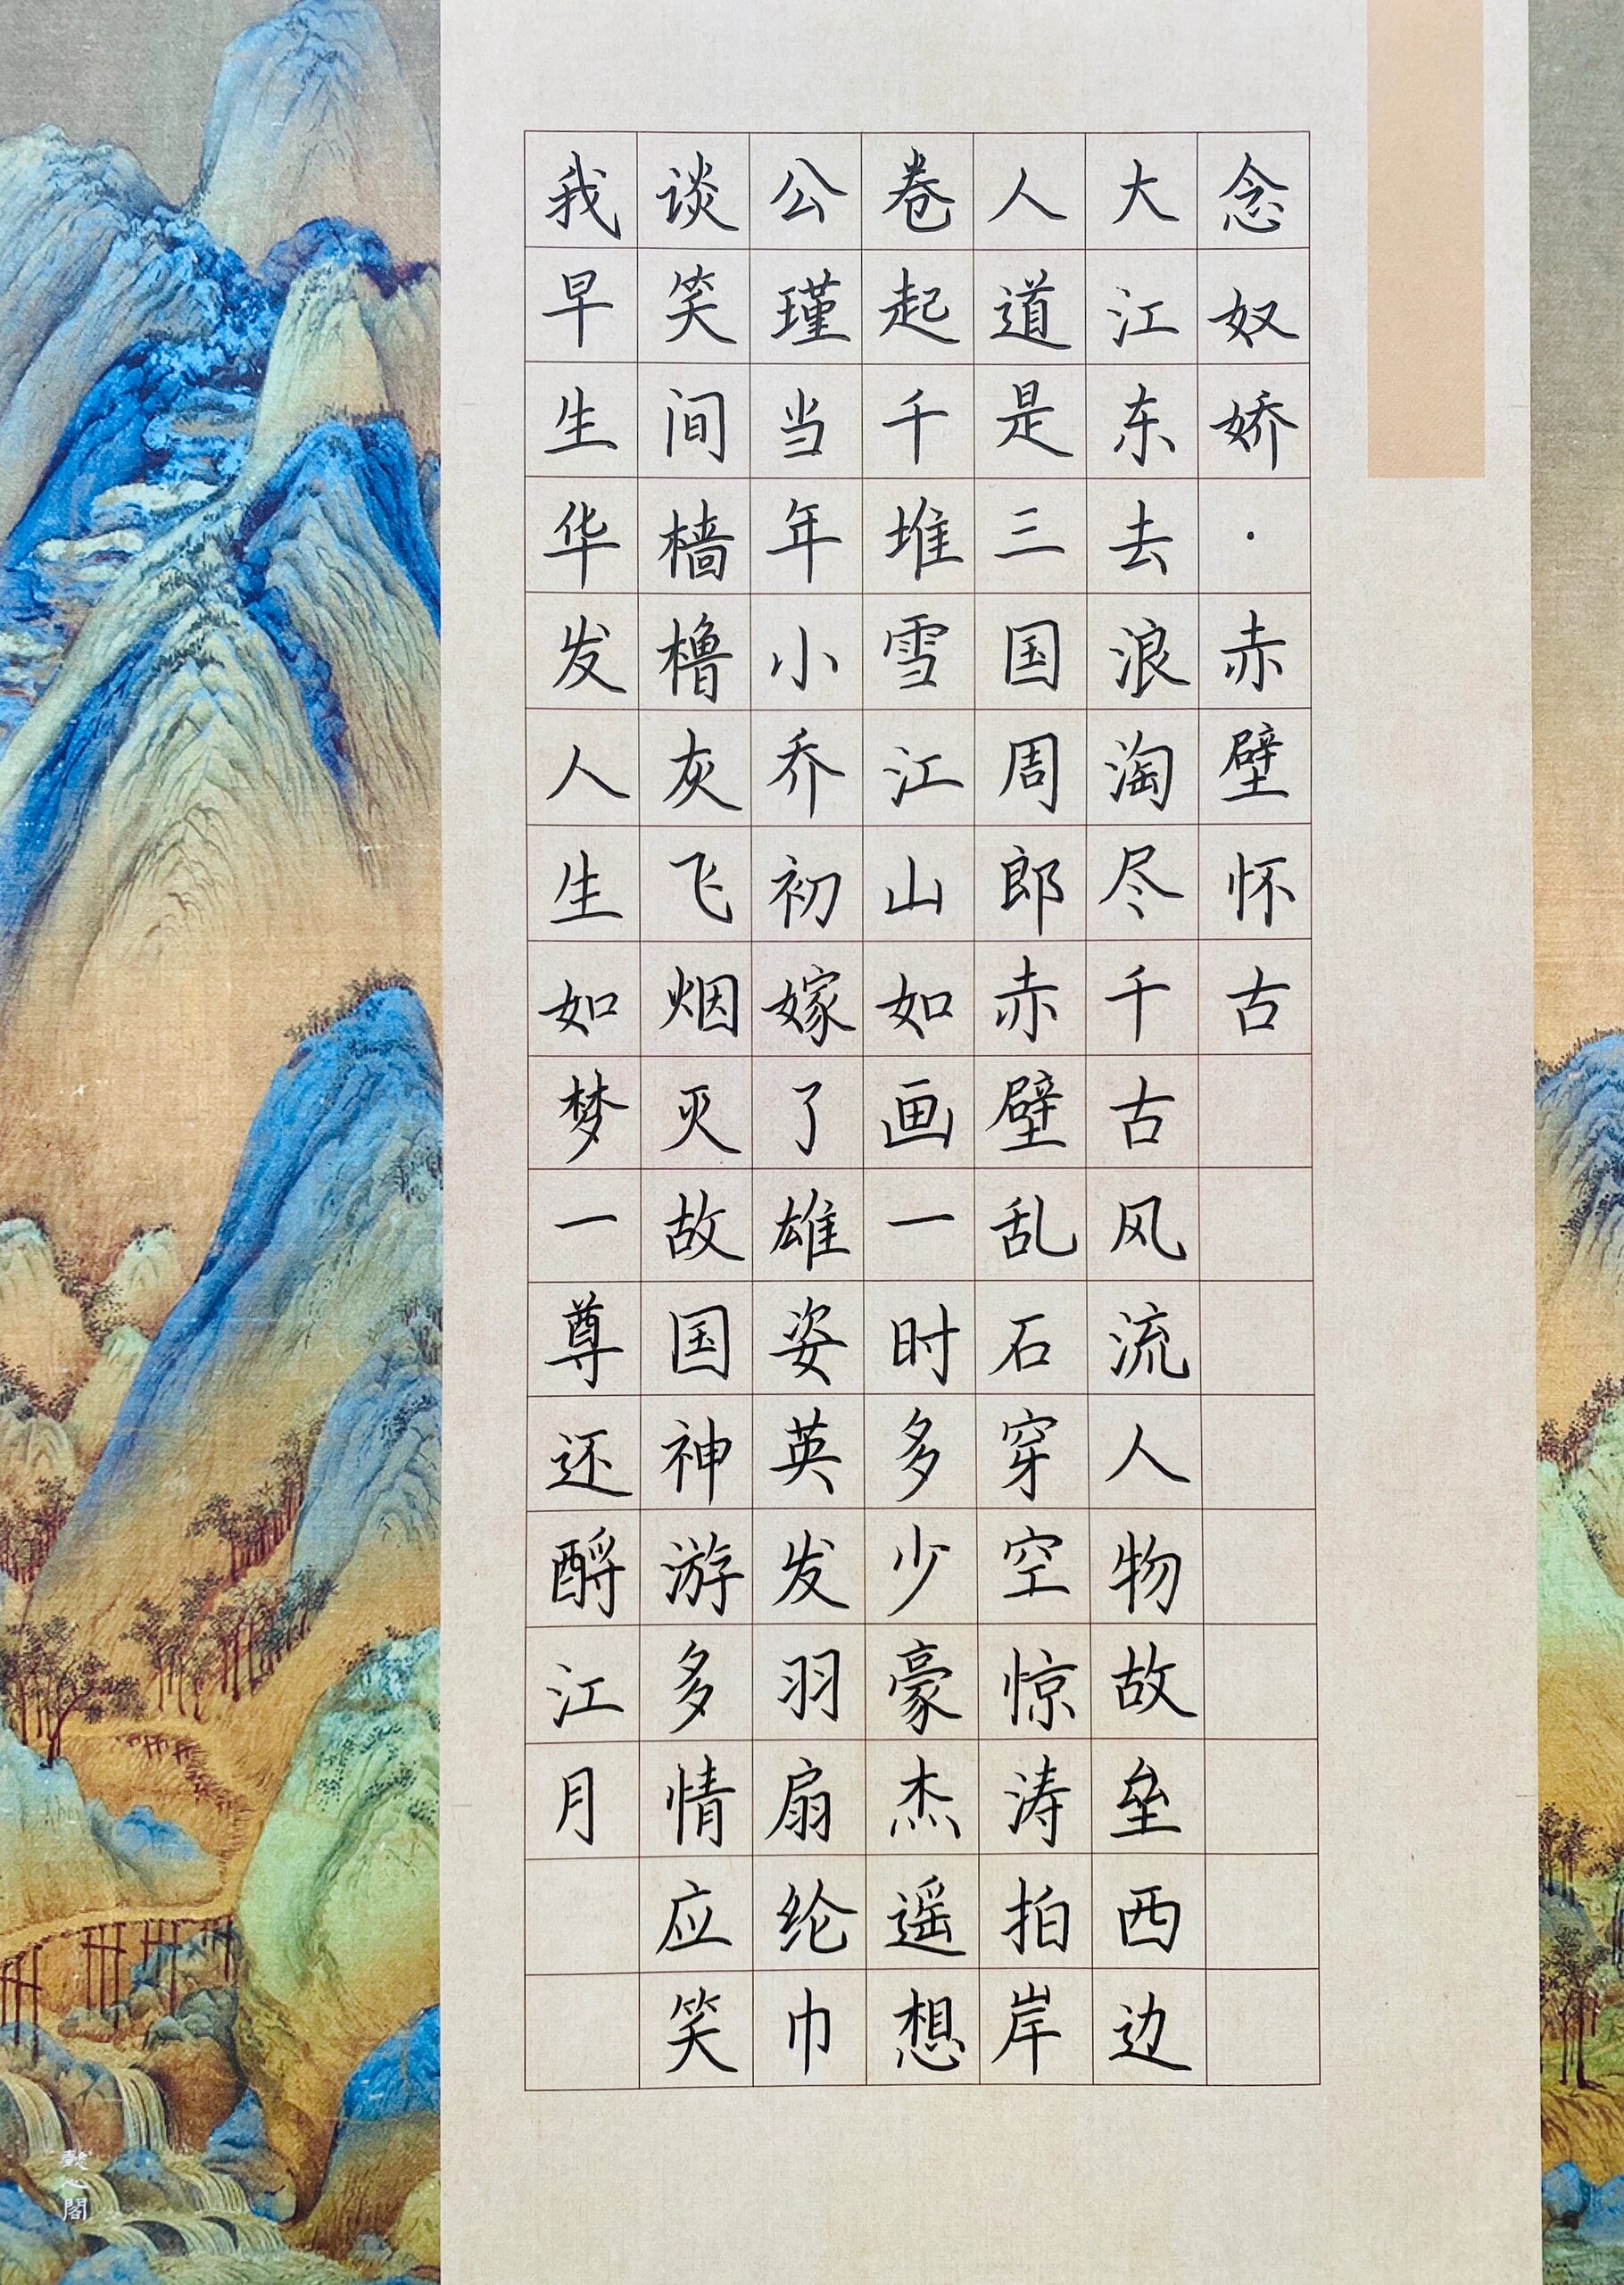 念奴娇·赤壁怀古
大江东去浪淘尽千古风流人物故垒西边
人道是三国周郎赤壁乱石穿空惊涛拍岸
卷起千堆雪江山如画一时多少豪杰遥想
公瑾当年小乔初嫁了雄姿英发羽扇纶巾
谈笑间樯橹灰飞烟灭故国神游多情应笑
我早生华发人生如梦一尊还酹江月
懿心閣